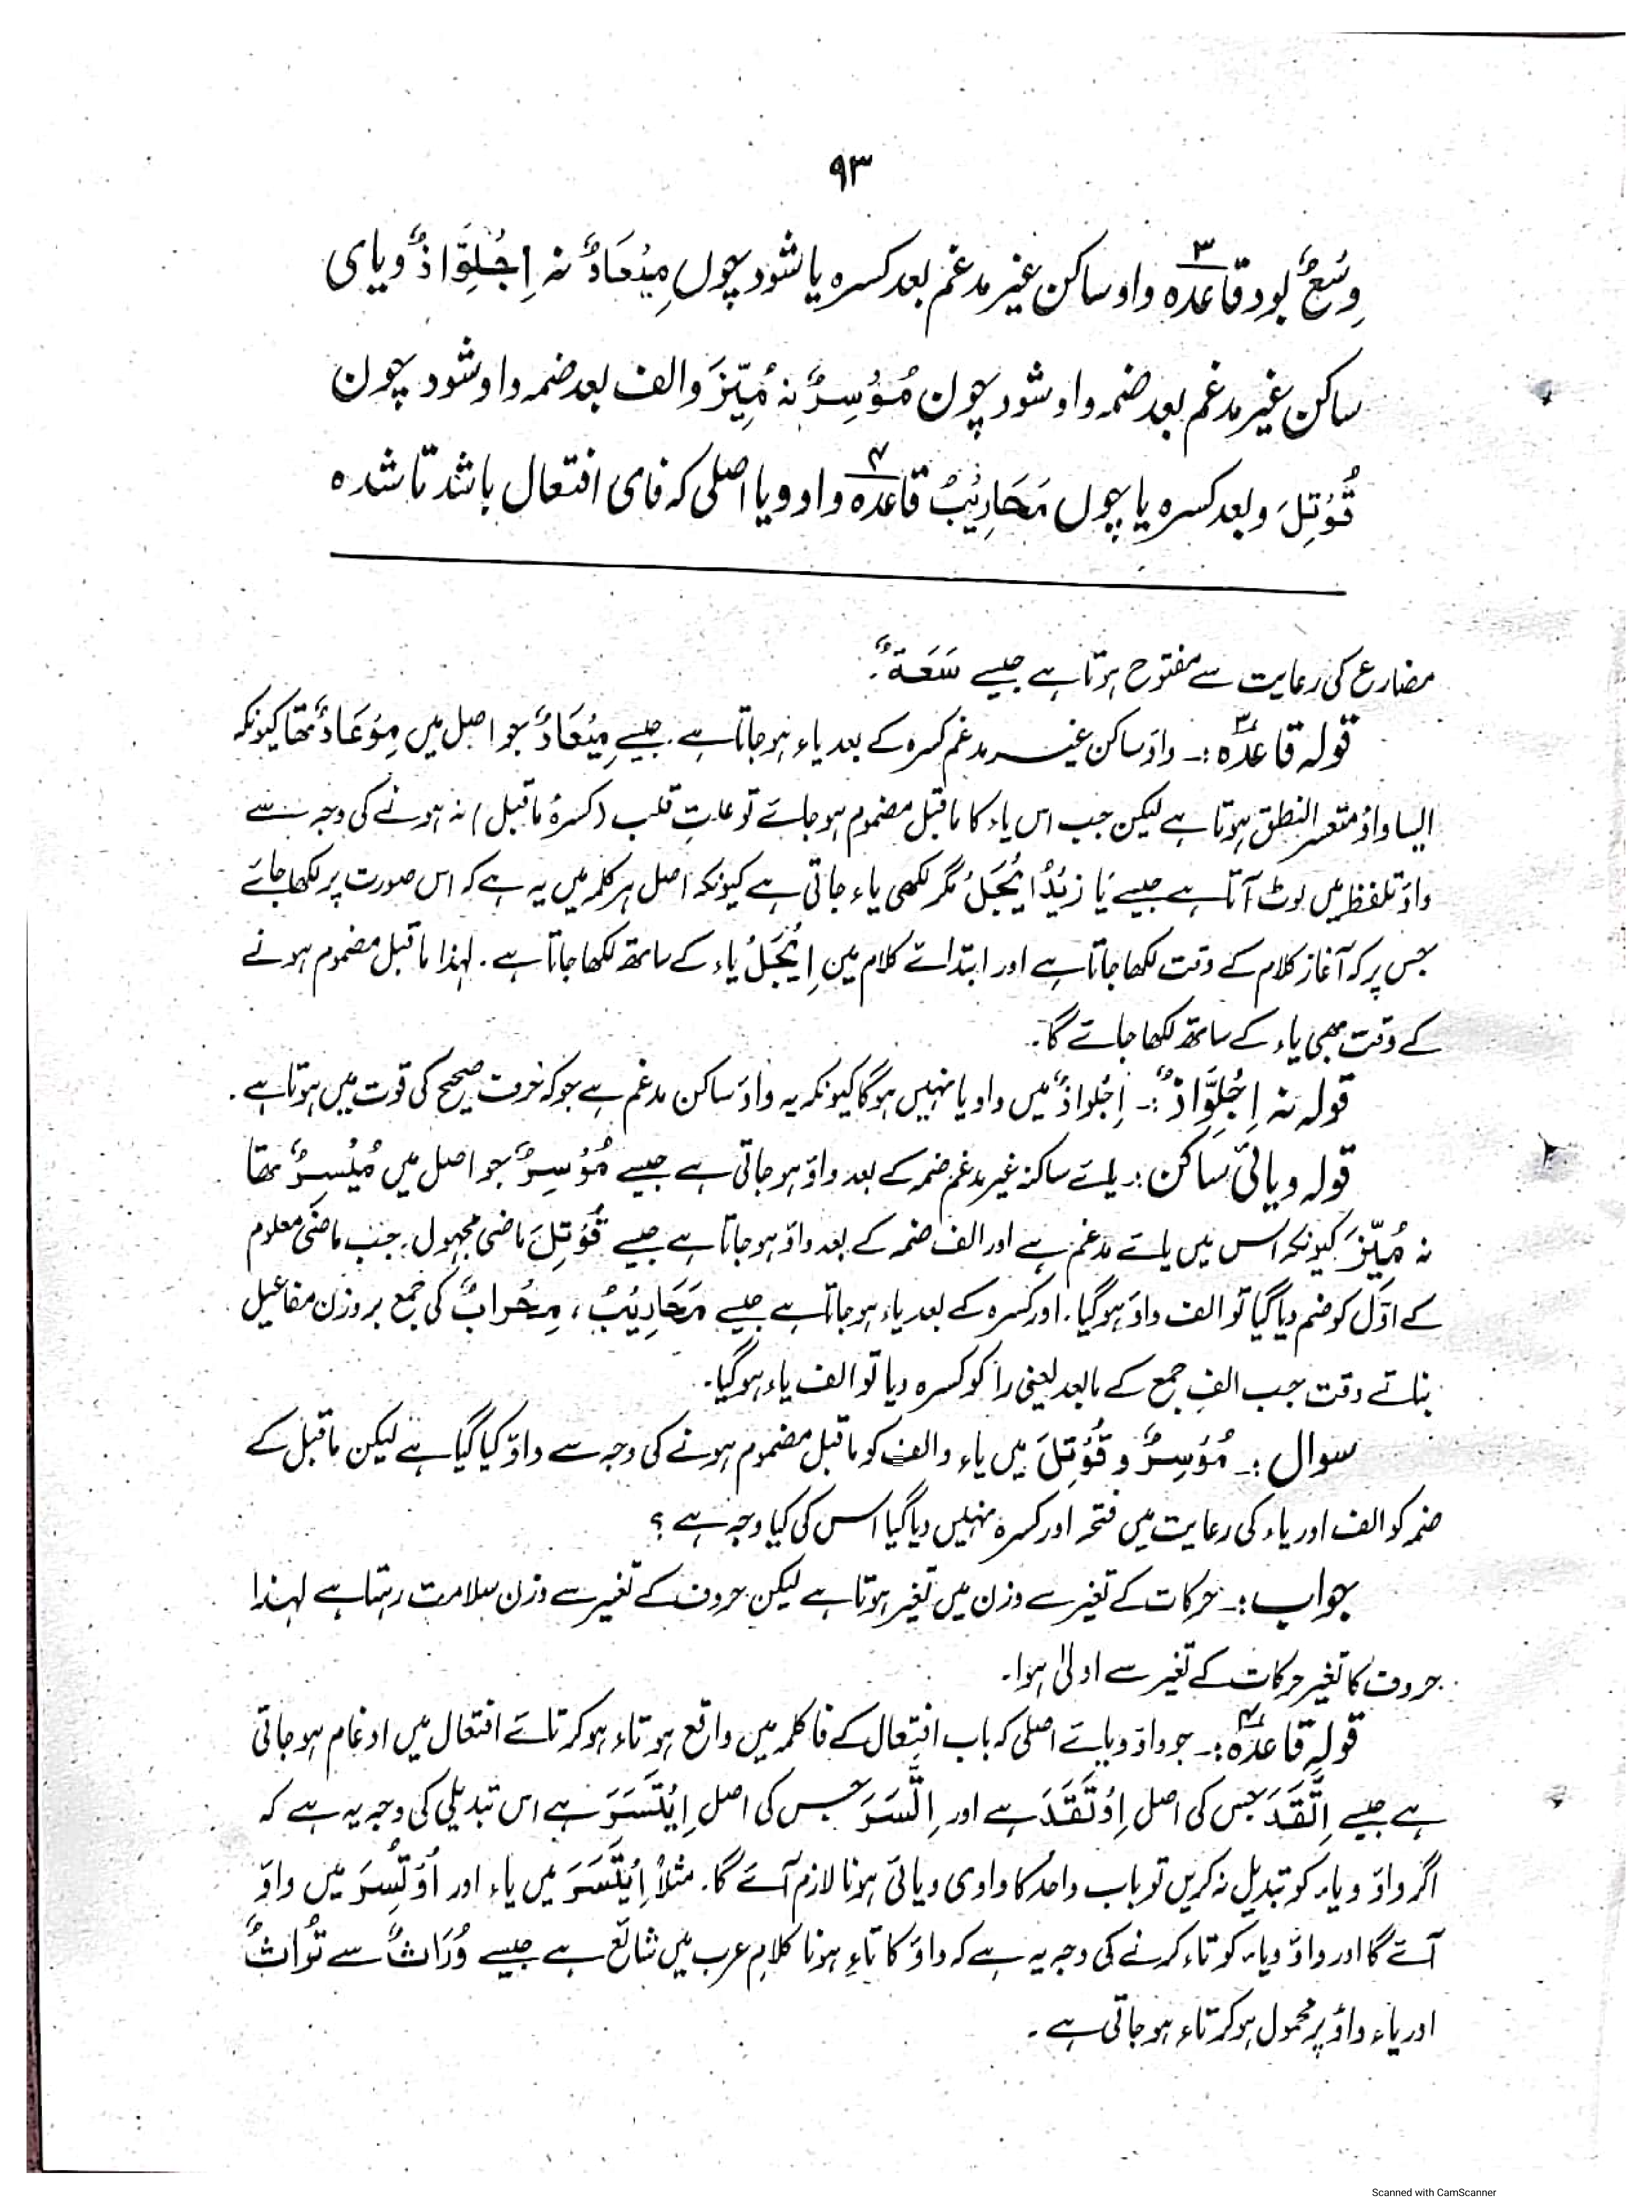 ۹۳
وِسْعٌ بود قاعدہ ۳ واو ساکن غیر مدغم بعد کسرہ یا شود چوں مِیْعَادٌ نہ اِجْلِوَّاذٌ و یای
ساکن غیر مدغم بعد ضمہ واو شود چون مُوْسِرٌ نہ مُیِّزَ و الف بعد ضمہ واو شود چون
قُوْتِلَ و بعد کسرہ یا چوں مَحَارِیْبُ قاعدہ ۴ واو و یا اصلی کہ فای افتعال باشد تا شدہ
مضارع کی رعایت سے مفتوح ہوتا ہے جیسے سَعَةٌ.
قولہ قاعدہ ۳:۔ واؤ ساکن غیر مدغم کسرہ کے بعد یاء ہو جاتا ہے۔ جیسے مِیْعَادٌ جو اصل میں مِوْعَادٌ تھا کیونکہ
ایسا واؤ متعسر النطق ہوتا ہے لیکن جب اس یاء کا ماقبل مضموم ہو جائے تو علتِ قلب (کسرۂ ماقبل) نہ ہونے کی وجہ سے
واؤ تلفظ میں لوٹ آتا ہے جیسے یَا زَیْدُ ایْجَلْ مگر لکھی یاء جاتی ہے کیونکہ اصل ہر کلمہ میں یہ ہے کہ اس صورت پر لکھا جائے
جس پر کہ آغاز کلام کے وقت لکھا جاتا ہے اور ابتدائے کلام میں اِیْجَلْ یاء کے ساتھ لکھا جاتا ہے۔ لہٰذا ماقبل مضموم ہونے
کے وقت بھی یاء کے ساتھ لکھا جائے گا۔
قولہ نہ اِجْلِوَّاذٌ:۔ اِجْلِواذٌ میں واو یا نہیں ہوگا کیونکہ یہ واؤ ساکن مدغم ہے جو کہ حرف صحیح کی قوت میں ہوتا ہے۔
قولہ و یائی ساکن:۔ یائے ساکنہ غیر مدغم ضمہ کے بعد واؤ ہو جاتی ہے جیسے مُوْسِرٌ جو اصل میں مُیْسِرٌ تھا
نہ مُیِّزَ کیونکہ اس میں یائے مدغم ہے اور الف ضمہ کے بعد واؤ ہو جاتا ہے جیسے قُوْتِلَ ماضی مجہول۔ جب ماضی معلوم
کے اوّل کو ضم دیا گیا تو الف واؤ ہو گیا۔ اور کسرہ کے بعد یاء ہو جاتا ہے جیسے مَحَارِیْبُ، مِحْرابٌ کی جمع بروزن مفاعیل
بناتے وقت جب الفِ جمع کے مابعد یعنی را کو کسرہ دیا تو الف یاء ہو گیا۔
سوال:۔ مُوْسِرٌ و قُوْتِلَ میں یاء و الف کو ماقبل مضموم ہونے کی وجہ سے واؤ کیا گیا ہے لیکن ماقبل کے
ضمہ کو الف اور یاء کی رعایت میں فتحہ اور کسرہ نہیں دیا گیا اس کی کیا وجہ ہے؟
جواب:۔ حرکات کے تغیر سے وزن میں تغیر ہوتا ہے لیکن حروف کے تغیر سے وزن سلامت رہتا ہے لہٰذا
حروف کا تغیر حرکات کے تغیر سے اولیٰ ہوا۔
قولہ قاعدہ ۴:۔ جو واؤ و یائے اصلی کہ باب افتعال کے فا کلمہ میں واقع ہو تاء ہو کر تائے افتعال میں ادغام ہو جاتی
ہے جیسے اِتَّقَدَ جس کی اصل اِوْتَقَدَ ہے اور اِتَّسَرَ جس کی اصل اِیْتَسَرَ ہے اس تبدیلی کی وجہ یہ ہے کہ
اگر واؤ و یاء کو تبدیل نہ کریں تو باب واحد کا واوی و یائی ہونا لازم آئے گا۔ مثلاً اِیْتَسَرَ میں یاء اور اُوْتُسِرَ میں واؤ
آئے گا اور واؤ و یاء کو تاء کرنے کی وجہ یہ ہے کہ واؤ کا تاء ہونا کلامِ عرب میں شائع ہے جیسے وُرَاثٌ سے تُراثٌ
اور یاء واؤ پر محمول ہو کر تاء ہو جاتی ہے۔
Scanned with CamScanner